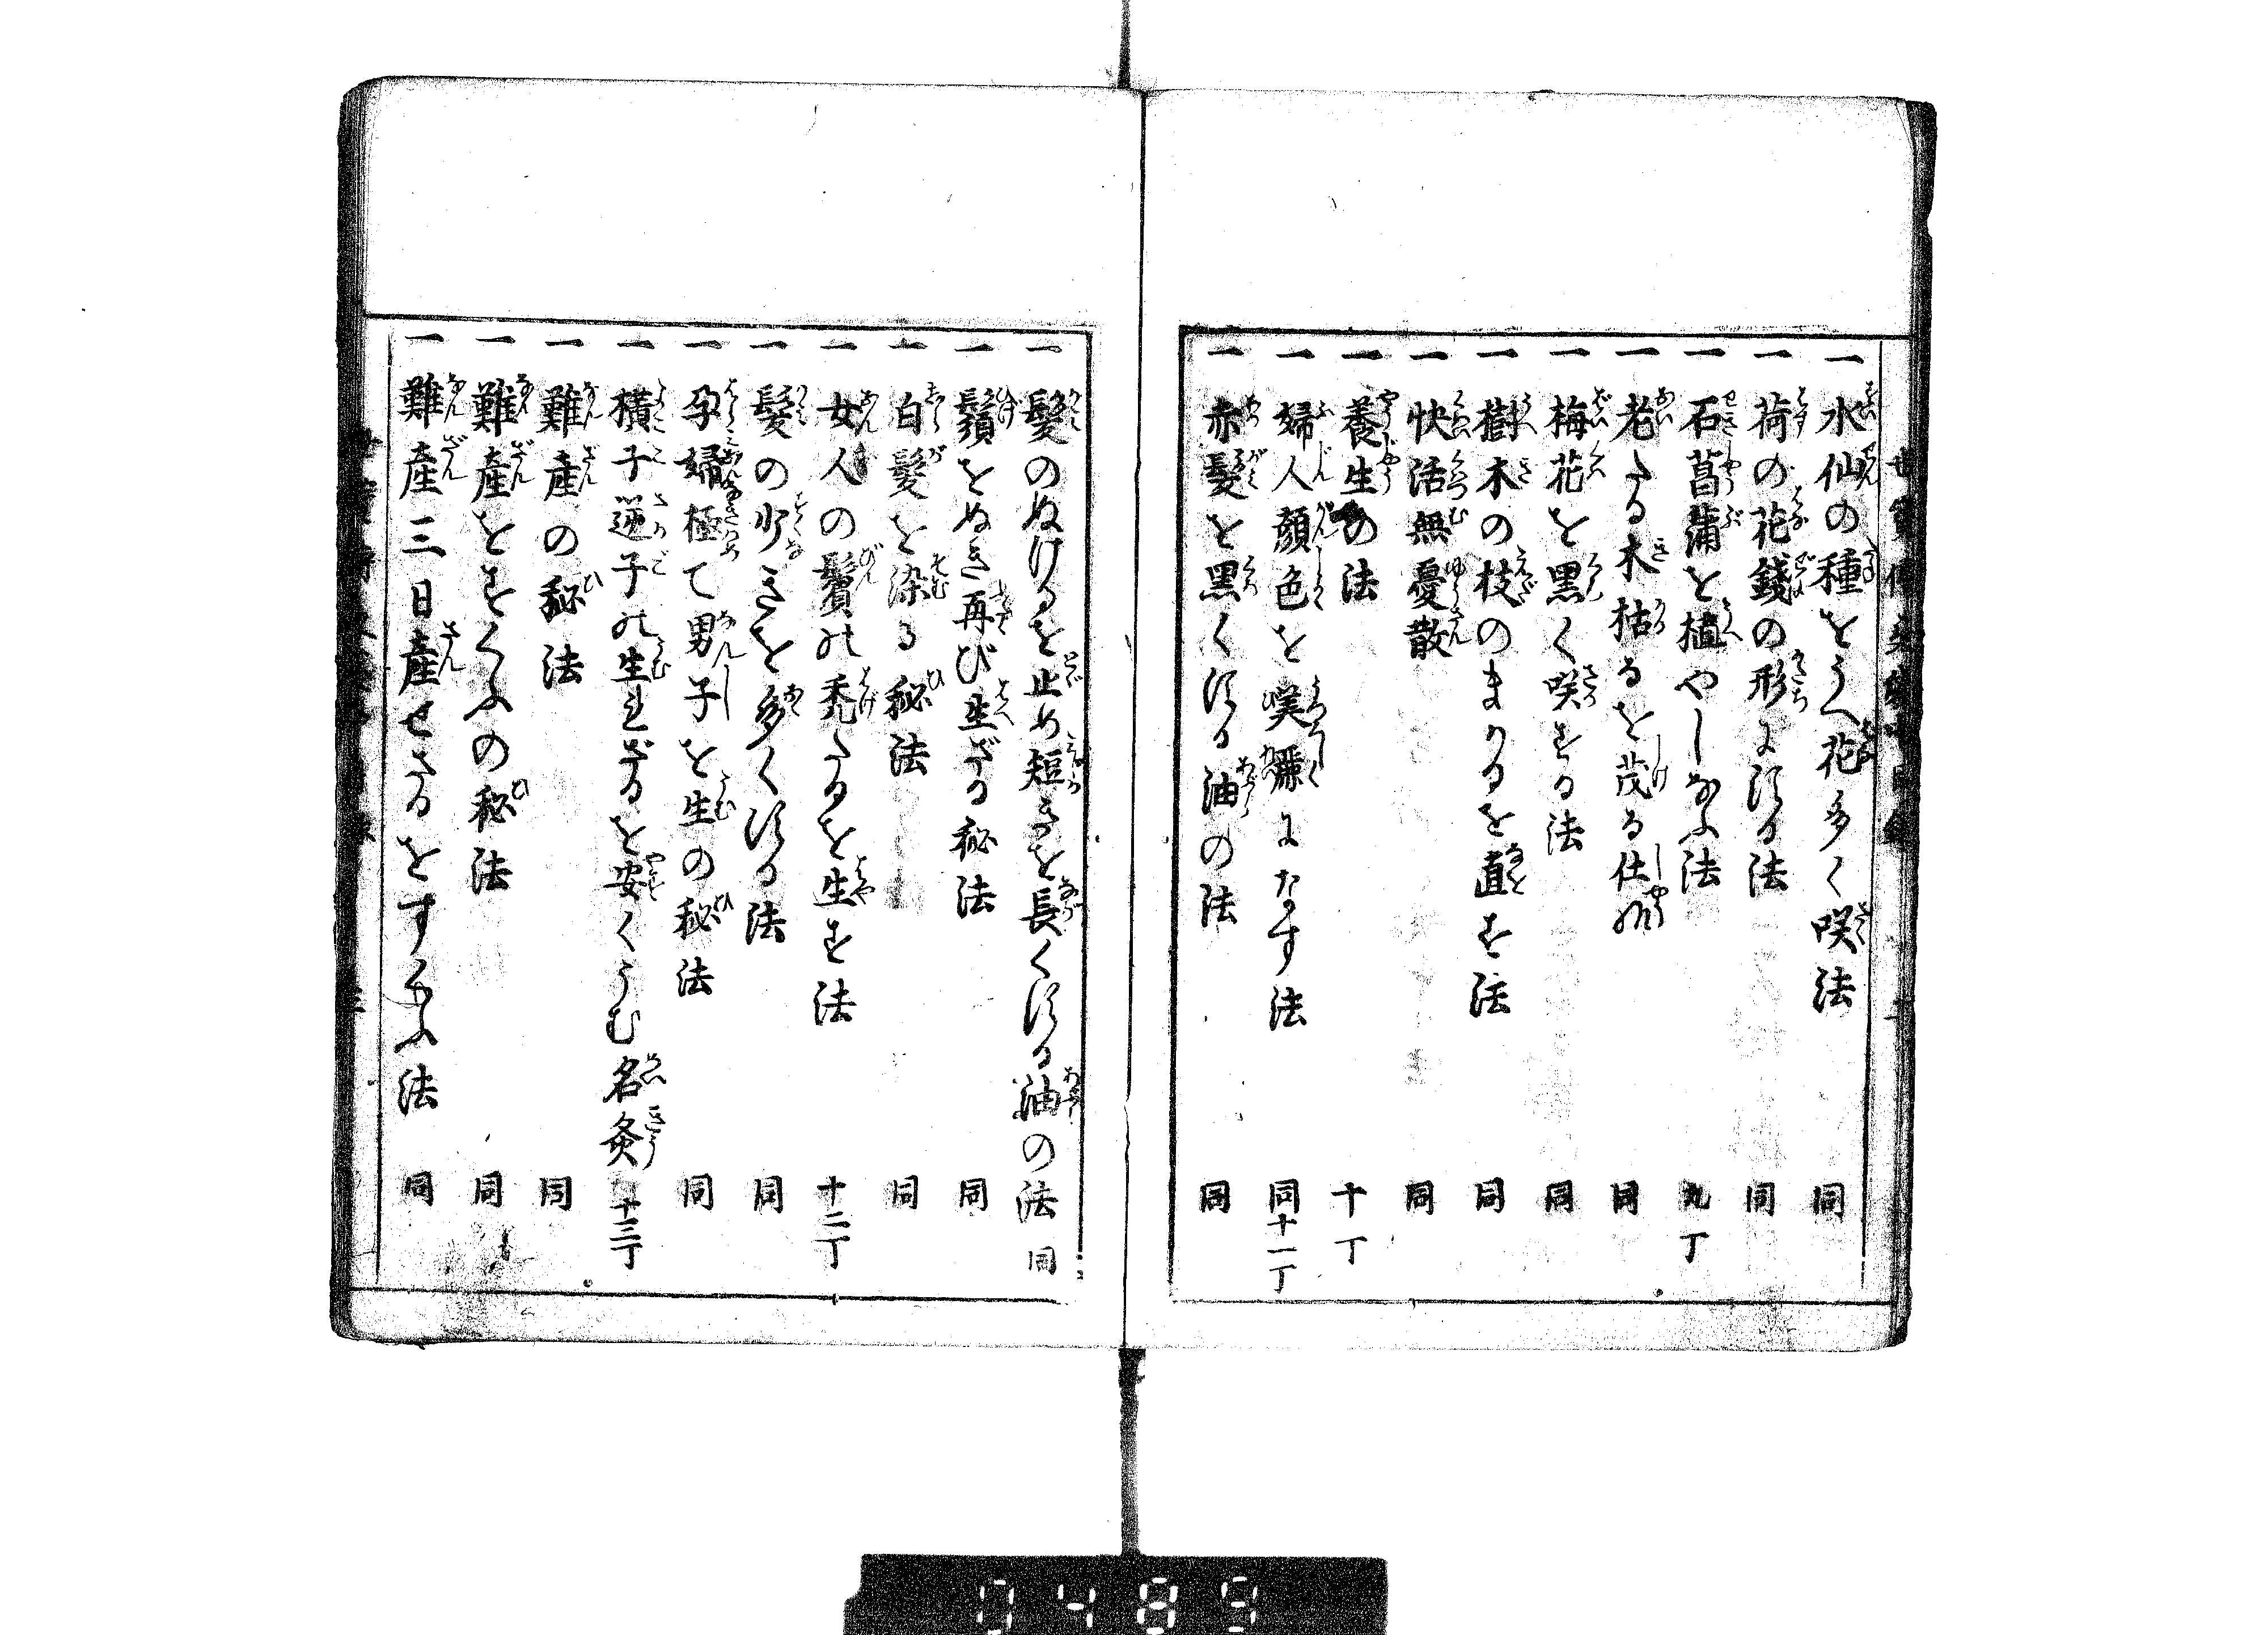 一 水仙の種をうへ花多く咲法 同
一 荷の花錢の形にする法 同
一 石菖蒲を植やしなふ法 九丁
一 老たる木枯るを茂る仕やう 同
一 梅花を黒く咲する法 同
一 樹木の枝のまかるを直す法 同
一 快活無憂散 同
一 養生の法 十丁
一 婦人顔色を美麗になす法 同十一丁
一 赤髪を黒くする油の法 同
一 髪のぬけるを止め短きを長くする油の法 同
一 鬚をぬき再び生ざる秘法 同
一 白髪を染る秘法 同
一 女人の鬢の禿たるを生す法 十二丁
一 髪の少きを多くする法 同
一 孕婦極て男子を生の秘法 同
一 横子逆子の生れざるを安くうむ名灸 十三丁
一 難産の秘法 同
一 難産をすくふの秘法 同
一 難産三日産せざるをすくふ法 同
0489